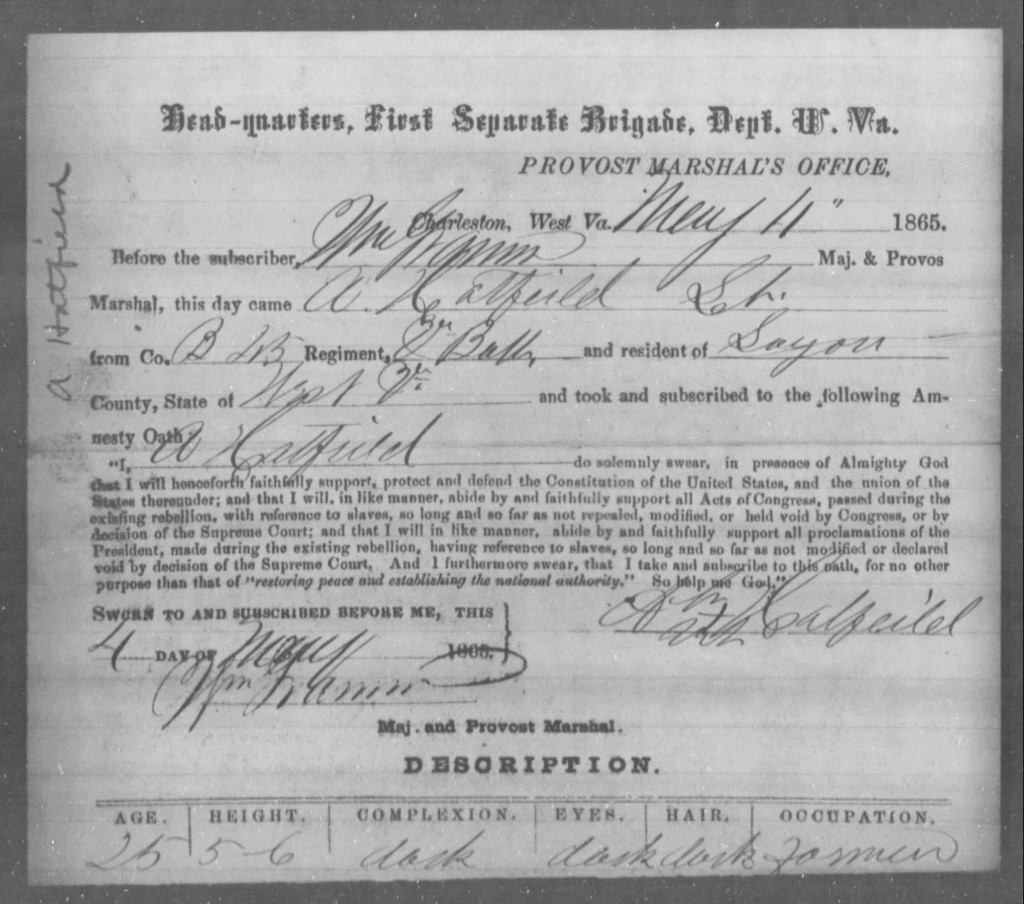 Head-quarters, First Separate Brigade, Dept. W. Va.
PROVOST MARSHAL'S OFFICE,
Charleston, West Va. May 4" 1865.
Before the subscriber, Wm Maj. & Provos
Marshal, this day came A. Hatfeild Lt.
from Co. B 45 Regiment, Va Batt, and resident of Logon
County, State of West Va and took and subscribed to the following Am-
nesty Oath
"I, A Hatfield do solemnly swear, in presence of Almighty God
that I will henceforth faithfully support, protect and defend the Constitution of the United States, and the union of the
States thereunder; and that I will, in like manner, abide by and faithfully support all Acts of Congress, passed during the
existing rebellion, with reference to slaves, so long and so far as not repealed, modified, or held void by Congress, or by
decision of the Supreme Court; and that I will in like manner, abide by and faithfully support all proclamations of the
President, made during the existing rebellion, having reference to slaves, so long and so far as not modified or declared
void by decision of the Supreme Court. And I furthermore swear, that I take and subscribe to this oath, for no other
purpose than that of "restoring peace and establishing the national authority." So help me God,"
SWORN TO AND SUBSCRIBED BEFORE ME, THIS
A Hatfeild
4 DAY OF May 1865.
Wm
Maj. and Provost Marshal.
DESCRIPTION.
AGE. HEIGHT. COMPLEXION. EYES. HAIR. OCCUPATION.
25 5-6 dark dark dark Farmer
A. Hatfield